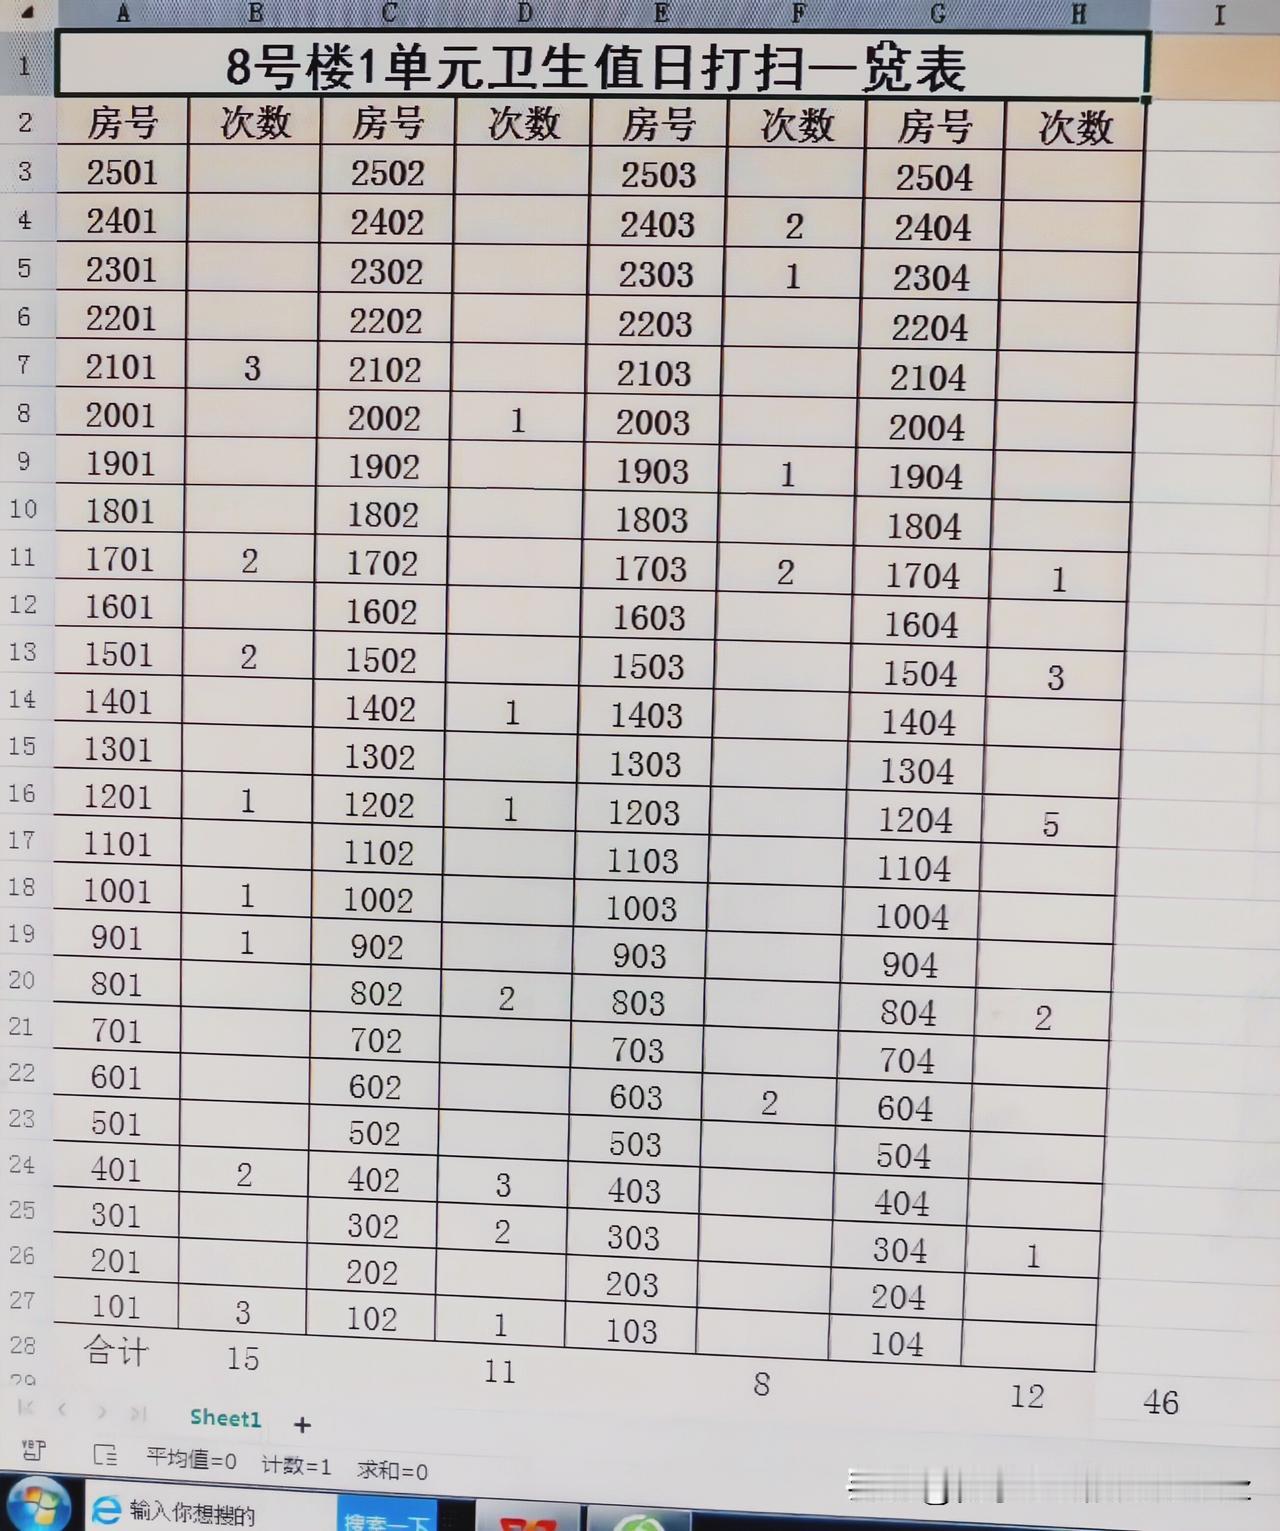 A B C D E F G H I
1 8号楼1单元卫生值日打扫一览表
2 房号 次数 房号 次数 房号 次数 房号 次数
3 2501 2502 2503 2504
4 2401 2402 2403 2 2404
5 2301 2302 2303 1 2304
6 2201 2202 2203 2204
7 2101 3 2102 2103 2104
8 2001 2002 1 2003 2004
9 1901 1902 1903 1 1904
10 1801 1802 1803 1804
11 1701 2 1702 1703 2 1704 1
12 1601 1602 1603 1604
13 1501 2 1502 1503 1504 3
14 1401 1402 1 1403 1404
15 1301 1302 1303 1304
16 1201 1 1202 1 1203 1204 5
17 1101 1102 1103 1104
18 1001 1 1002 1003 1004
19 901 1 902 903 904
20 801 802 2 803 804 2
21 701 702 703 704
22 601 602 603 2 604
23 501 502 503 504
24 401 2 402 3 403 404
25 301 302 2 303 304 1
26 201 202 203 204
27 101 3 102 1 103 104
28 合计 15 11 8 12 46
29
Sheet1 +
平均值=0 计数=1 求和=0
输入你想搜的 搜索一下